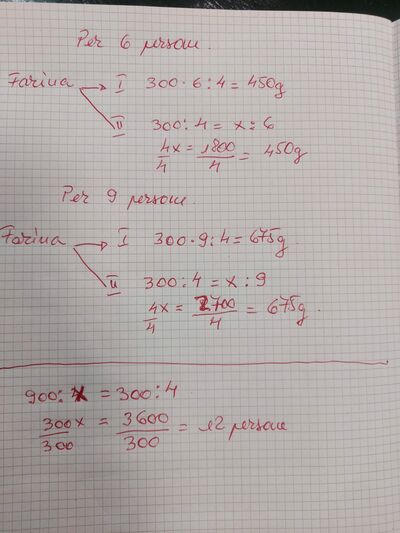 Per 6 persone.
Farina → I 300·6:4=450g
II 300:4=x:6
4x/4 = 1800/4 = 450g
Per 9 persone.
Farina → I 300·9:4=675g.
II 300:4=x:9
4x/4 = 2700/4 = 675g.
900:x=300:4
300x/300 = 3600/300 = 12 persone